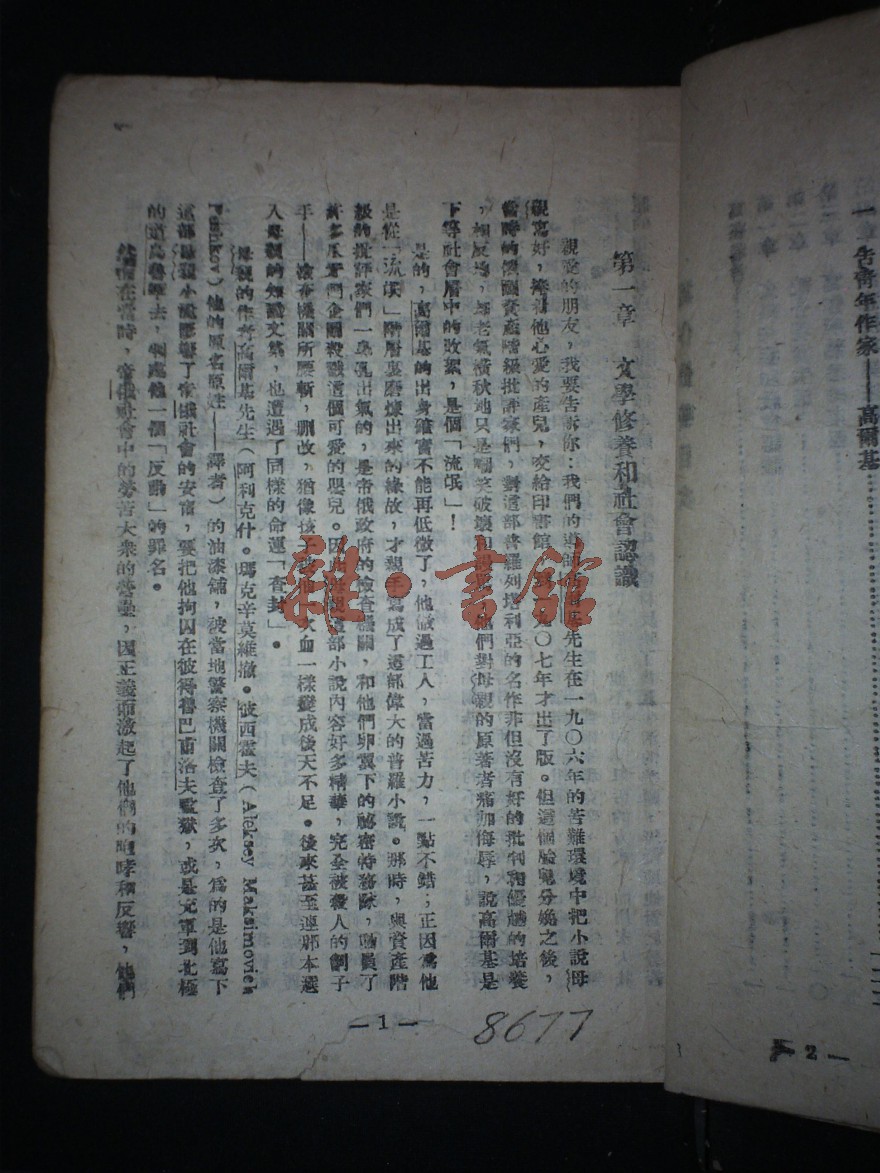 一 告青年作家——高爾基
— 2 —
第一章 文學修養和社會認識
親愛的朋友，我要告訴你：我們的導師高爾基先生在一九〇六年的苦難環境中把小說母
親寫好，捧着他心愛的產兒，交給印書館，到一九〇七年才出了版。但這個嬰兒分娩之後，
當時的俄國資產階級批評家們，對這部普羅列塔利亞的名作非但沒有好的批判和優越的培養
，相反地，却老氣橫秋地只是嘲笑破壞和，他們對母親的原著者痛加侮辱，說高爾基是
下等社會層中的敗類，是個「流氓」！
是的，高爾基的出身確實不能再低微了，他做過工人，當過苦力，一點不錯；正因爲他
是從「流氓」階層裏磨煉出來的緣故，才親手寫成了這部偉大的普羅小說。那時，與資產階
級的批評家們一鼻孔出氣的，是帝俄政府的檢查機關，和他們卵翼下的祕密特務隊，動員了
許多爪牙們企圖殺戮這個可愛的嬰兒。因此母親這部小說內容好多精華，完全被殺人的劊子
手——檢查機關所腰斬，刪改，猶像孩子被他吸血一樣變成後天不足。後來甚至連那本選
入母親的知識文集，也遭遇了同樣的命運「查封」。
母親的作者高爾基先生（阿利克什。瑪克辛莫維撤。彼西霍夫（Aleksey Maksimovich
Peshkov）他的原名原姓——譯者）的油漆舖，被當地警察機關檢查了多次，爲的是他寫下
這部母親小說影響了帝俄社會的安甯，要把他拘囚在彼得魯巴甫洛夫監獄，或是充軍到北極
的道島去，判處他一個「反動」的罪名。
然而在當時，帝俄社會中的勞苦大衆的勞工，因正義而激起了他們的咆哮和反響，他們
— 1 —
8677
雜·書館